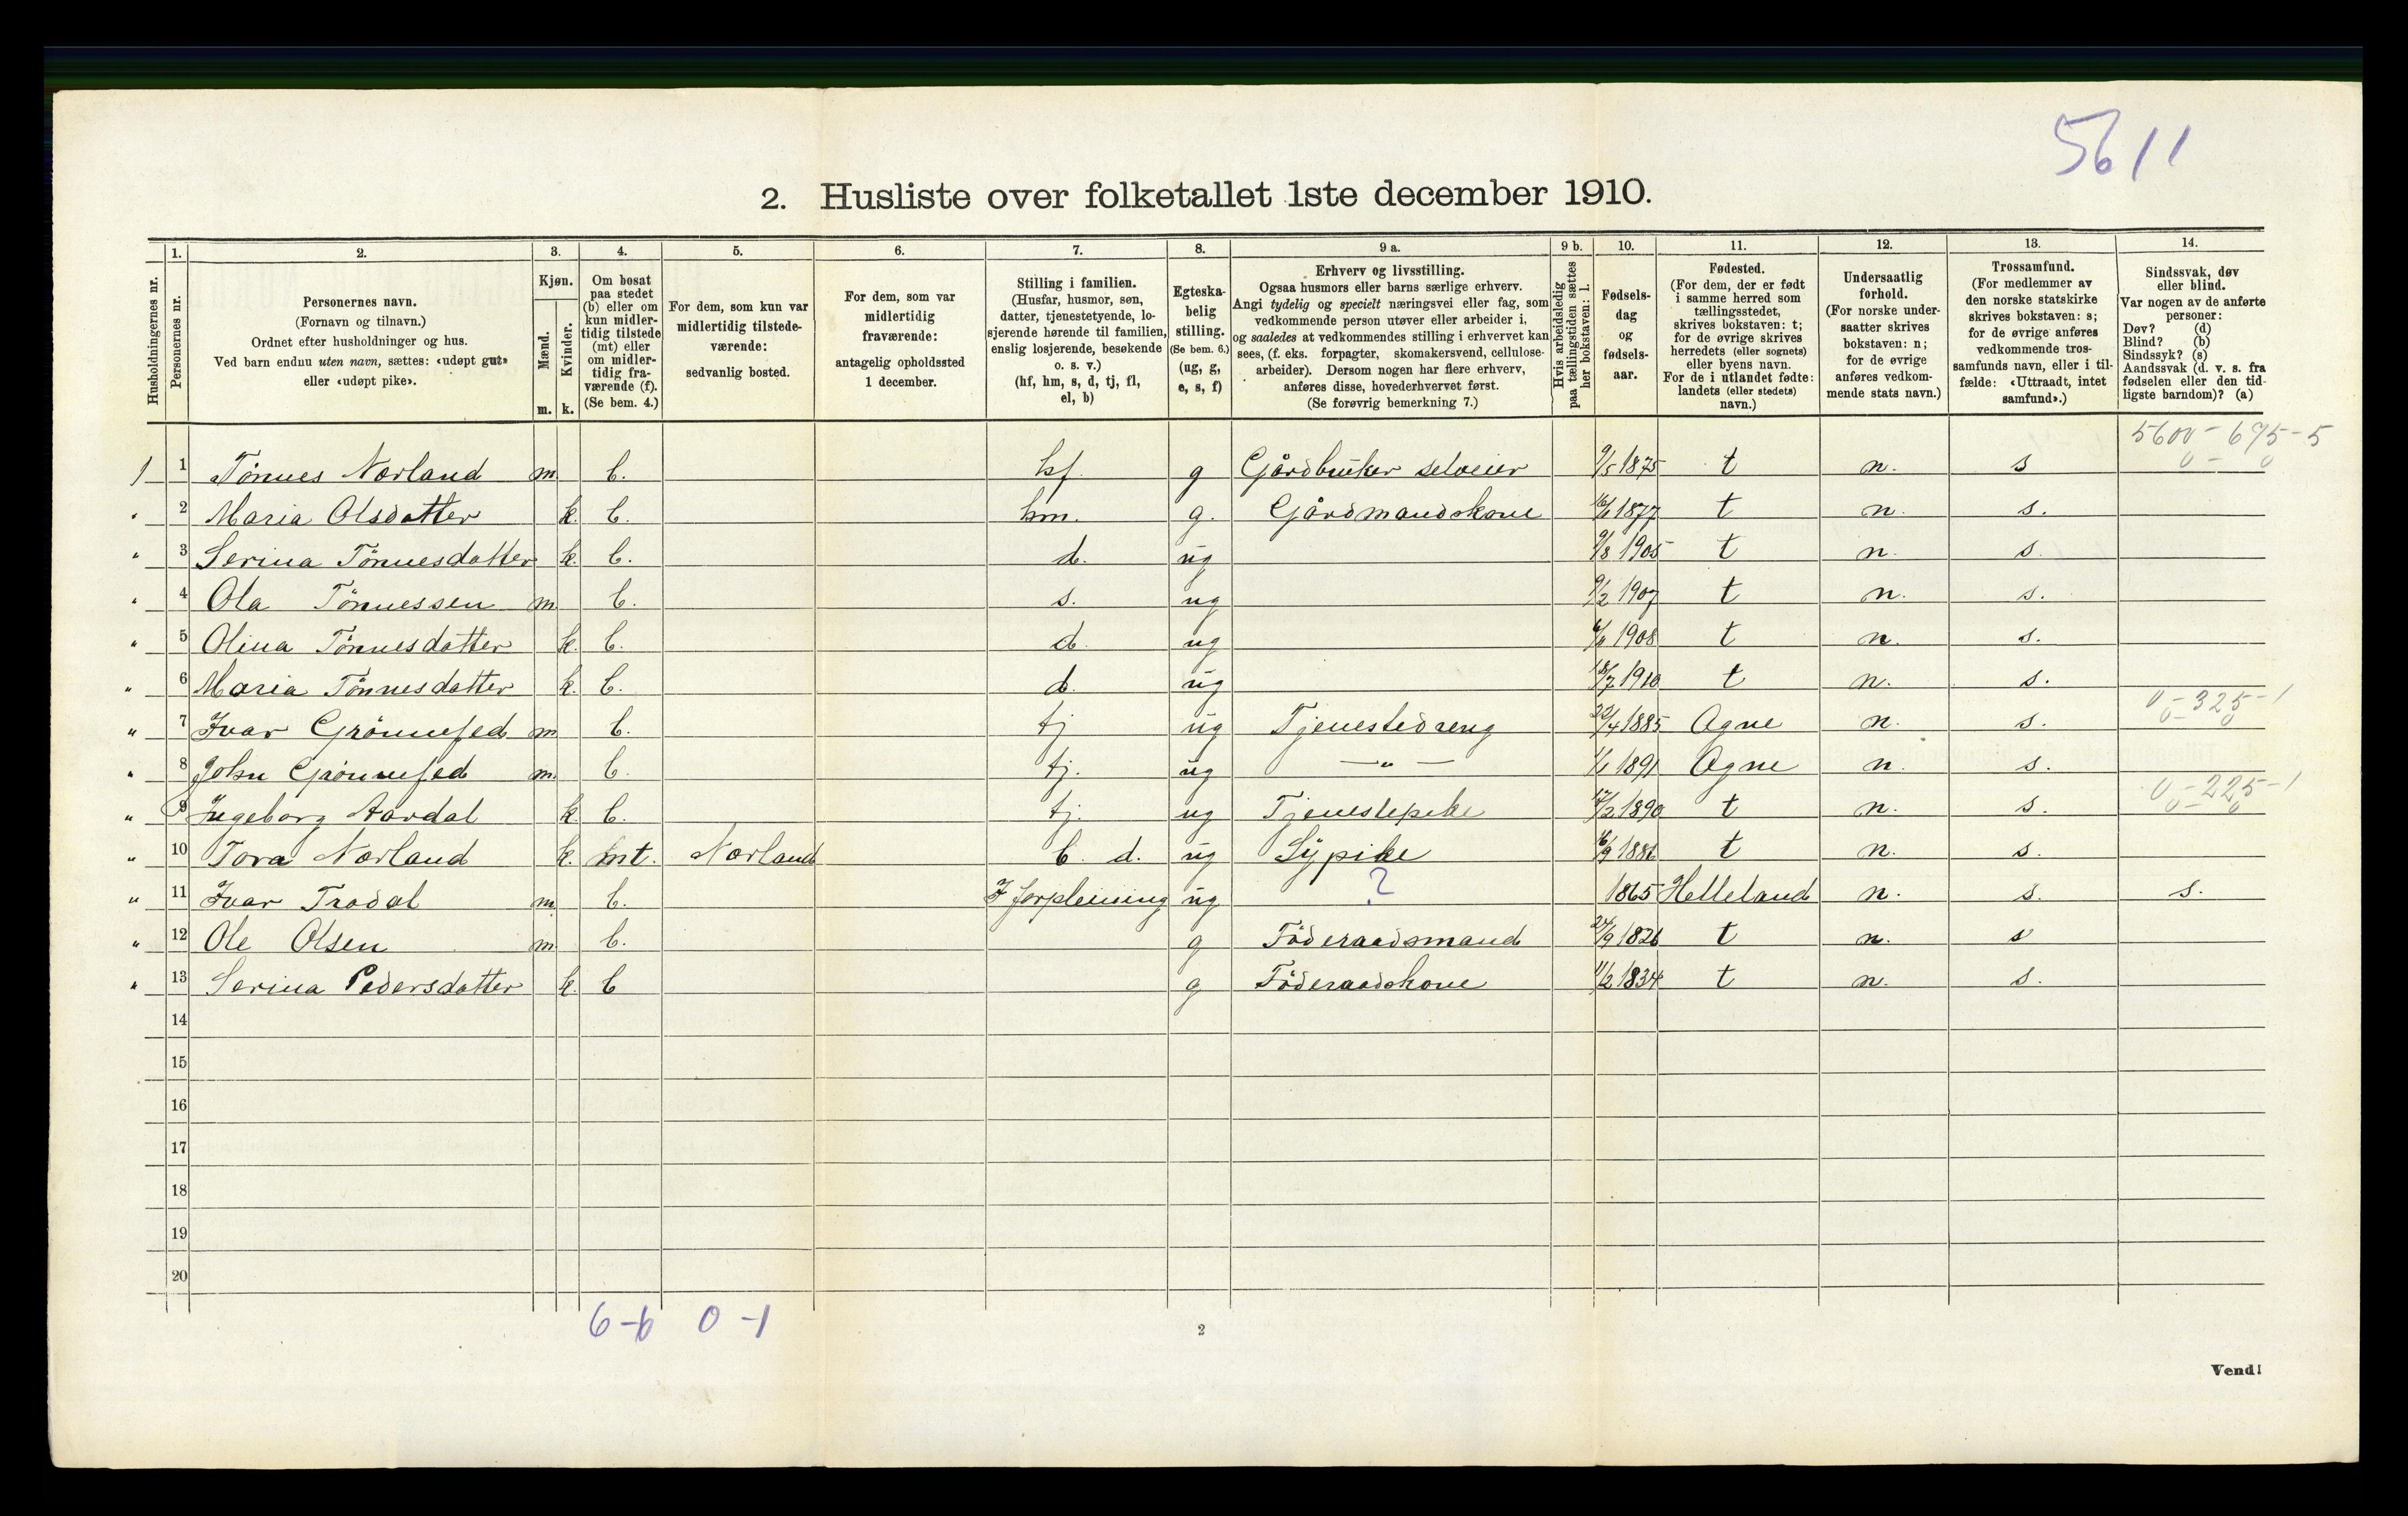 5611
2. Husliste over folketallet 1ste december 1910.
Husholdningernes nr.
1.
Personernes nr.
2.
Personernes navn.
(Fornavn og tilnavn.)
Ordnet efter husholdninger og hus.
Ved barn endnu uten navn, sættes: «udøpt gut»
eller «udøpt pike».
3.
Kjøn.
Mænd.
m.
Kvinder.
k.
4.
Om bosat
paa stedet
(b) eller om
kun midler-
tidig tilstede
(mt) eller
om midler-
tidig fra-
værende (f).
(Se bem. 4.)
5.
For dem, som kun var
midlertidig tilstede-
værende:
sedvanlig bosted.
6.
For dem, som var
midlertidig
fraværende:
antagelig opholdssted
1 december.
7.
Stilling i familien.
(Husfar, husmor, søn,
datter, tjenestetyende, lo-
sjerende hørende til familien,
enslig losjerende, besøkende
o. s. v.)
(hf, hm, s, d, tj, fl,
el, b)
8.
Egteska-
belig
stilling.
(Se bem. 6.)
(ug, g,
e, s, f)
9 a.
Erhverv og livsstilling.
Ogsaa husmors eller barns særlige erhverv.
Angi tydelig og specielt næringsvei eller fag, som
vedkommende person utøver eller arbeider i,
og saaledes at vedkommendes stilling i erhvervet kan
sees, (f. eks. forpagter, skomakersvend, cellulose-
arbeider). Dersom nogen har flere erhverv,
anføres disse, hovederhvervet først.
(Se forøvrig bemerkning 7.)
9 b.
Hvis arbeidsledig
paa tællingstiden sættes
her bokstaven: l.
10.
Fødsels-
dag
og
fødsels-
aar.
11.
Fødested.
(For dem, der er født
i samme herred som
tællingsstedet,
skrives bokstaven: t;
for de øvrige skrives
herredets (eller sognets)
eller byens navn.
For de i utlandet fødte:
landets (eller stedets)
navn.)
12.
Undersaatlig
forhold.
(For norske under-
saatter skrives
bokstaven: n;
for de øvrige
anføres vedkom-
mende stats navn.)
13.
Trossamfund.
(For medlemmer av
den norske statskirke
skrives bokstaven: s;
for de øvrige anføres
vedkommende tros-
samfunds navn, eller i til-
fælde: «Uttraadt, intet
samfund».)
14.
Sindssvak, døv
eller blind.
Var nogen av de anførte
personer:
Døv? (d)
Blind? (b)
Sindssyk? (s)
Aandssvak (d. v. s. fra
fødselen eller den tid-
ligste barndom)? (a)
5600 - 695 - 5
0 - 0
1 1 Tönnes Norland m. b. hf. g Gårdbruker selveier 9/5 1875 t n. s
" 2 Maria Olsdatter k. b. hm. g. Gårdmandskone 1877 t n. s.
" 3 Serina Tönnesdatter k. b. d. ug 9/8 1905 t n. s.
" 4 Ola Tönnessen m. b. s. ug 9/2 1907 t n. s.
" 5 Olina Tönnesdatter k. b. d. ug 1908 t n. s.
" 6 Maria Tönnesdatter k. b. d. ug 18/7 1910 t n. s.
0 - 325 - 1
0 - 0
" 7 Ivar Grönnefed m b. tj ug Tjenestedreng 22/4 1885 Ogne n. s.
" 8 John Grönnefed m. b. tj. ug — " — 1/1 1891 Ogne n. s.
0 - 225 - 1
0 - 0
" 9 Ingeborg Aardal k. b. tj. ug Tjenestepike 17/2 1890 t n. s.
" 10 Tora Norland k. mt. Norland b. d. ug Sypike 1886 t n. s.
" 11 Ivar Trodal m. b. I forpleining ug ? 1865 Helleland n. s. s.
" 12 Ole Olsen m. b. g Föderaadsmand 24/9 1826 t n. s
" 13 Serina Pedersdatter k. b g Föderaadskone 11/2 1834 t n. s.
14
15
16
17
18
19
20
6-6 0-1
2
Vend!